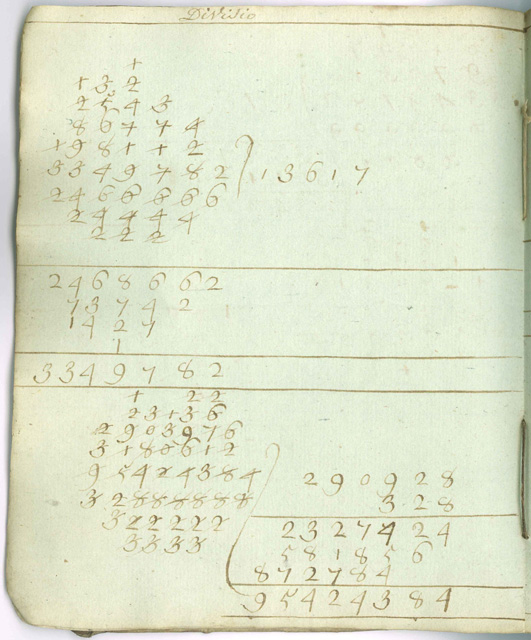 Divisio
1
1 3 2
2 5 4 3
8 6 7 7 4
1 9 8 1 1 2
3 3 4 9 7 8 2 ) 1 3 6 1 7
2 4 6 6 6 6 6
2 4 4 4 4
2 2 2
2 4 6 8 6 6 2
7 3 7 4 2
1 4 2 7
1
3 3 4 9 7 8 2
1 2 2
2 3 1 3 6
2 9 0 3 9 7 6
3 1 8 0 6 1 2
9 5 4 2 4 3 8 4
3 2 8 8 8 8 8 8
3 2 2 2 2 2
3 3 3 3
2 9 0 9 2 8
3 2 8
2 3 2 7 4 2 4
5 8 1 8 5 6
8 7 2 7 8 4
9 5 4 2 4 3 8 4